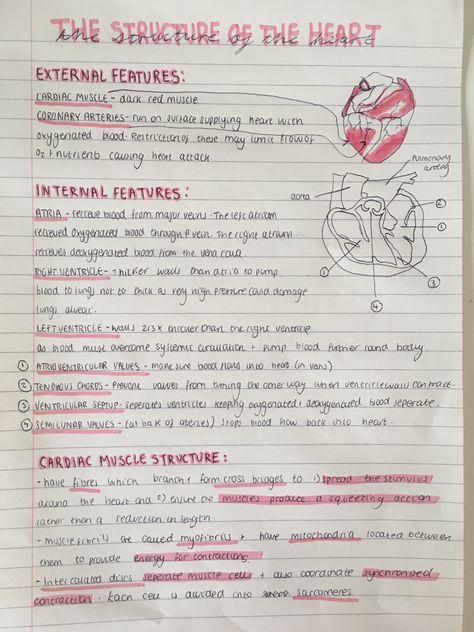 THE STRUCTURE OF THE HEART
the structure of the heart
EXTERNAL FEATURES:
CARDIAC MUSCLE - dark red muscle
CORONARY ARTERIES - run on surface supplying heart with
oxygenated blood. Restriction of these may limit flow of
O2 + nutrients causing heart attack.
Pulmonary
artery
aorta
INTERNAL FEATURES:
ATRIA - recieve blood from major veins. The left atrium
recieved oxygenated blood through P vein. The right atrium
recieves deoxygenated blood from the vena cava.
RIGHT VENTRICLE - thicker walls than atria to pump
blood to lungs not to thick as very high pressure could damage
lungs alveoli.
LEFT VENTRICLE - walls 2/3 x thicker than the right ventricle
as blood must overcome systemic circulation + pump blood further round body.
① ATRIOVENTRICULAR VALVES - make sure blood flows into heart (in vans)
② TENDONOUS CHORDS - prevent valves from turning the other way when ventricle walls contract.
③ VENTRICULAR SEPTUP - seperates ventricles keeping oxygenated + deoxygenated blood seperate.
④ SEMILUNAR VALVES - (at base of ateries) stops blood flow back into heart.
②
①
① ④ ③
CARDIAC MUSCLE STRUCTURE:
- have fibres which branch + form cross bridges to 1) spread the stimulus
around the heart and 2) ensure the muscles produce a squeezing action
rather than a reduction in length.
- muscle fibrils are called myofibrils + have mitochondria located between
them to provide energy for contractions.
- Intercalated discs seperate muscle cells + also coordinate synchronised
contraction. Each cell is divided into sarcomeres